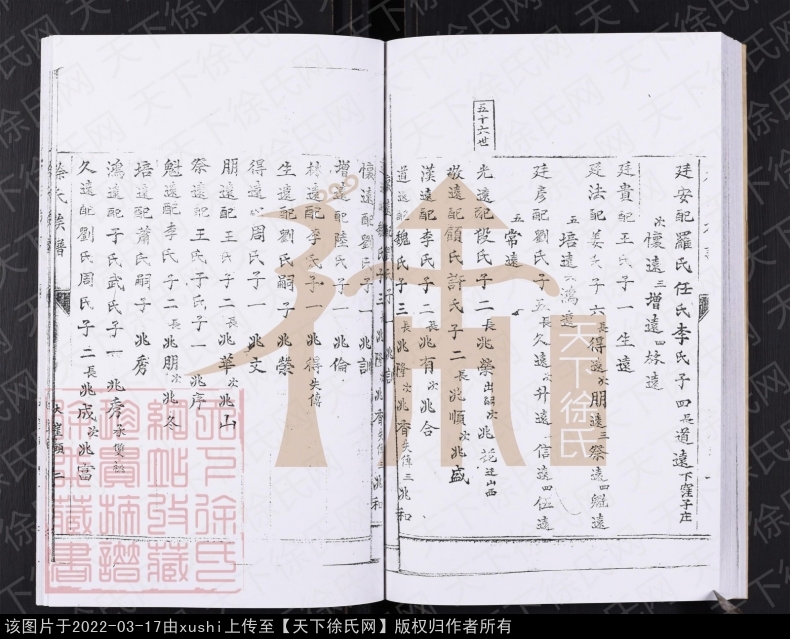 廷安配羅氏任氏李氏子四長道遠下窪子庄
次懷遠三增遠四林遠
廷貴配王氏子一 生遠
廷法配姜氏子六長得遠次朋遠三祭遠四魁遠
五培遠 鴻遠
廷彥配劉氏子五長久遠次升遠 信遠四伍遠
五常遠
五十六世
光遠配段氏子二長兆榮出嗣次兆花迁山西
敬遠配顧氏許氏子二長兆順次兆盛
漢遠配李氏子二長兆有次兆合
道遠配魏氏子三長兆隆次兆齊失傳三兆和
懷遠配劉氏子一 兆訓
增遠配陸氏子一 兆倫
林遠配李氏子一 兆得失傳
生遠配劉氏嗣子 兆榮
得遠配周氏子一 兆文
朋遠配王氏子二長兆華次兆山
祭遠配王氏子一兆序
魁遠配李氏子二長兆朋次兆冬
培遠配蕭氏嗣子 兆秀
鴻遠配于氏武氏子一兆彥承雙祧
久遠配劉氏周氏子二長兆成次兆富
徐氏族譜
天下徐氏
天下徐氏网
该图片于2022-03-17由xushi上传至【天下徐氏网】版权归作者所有